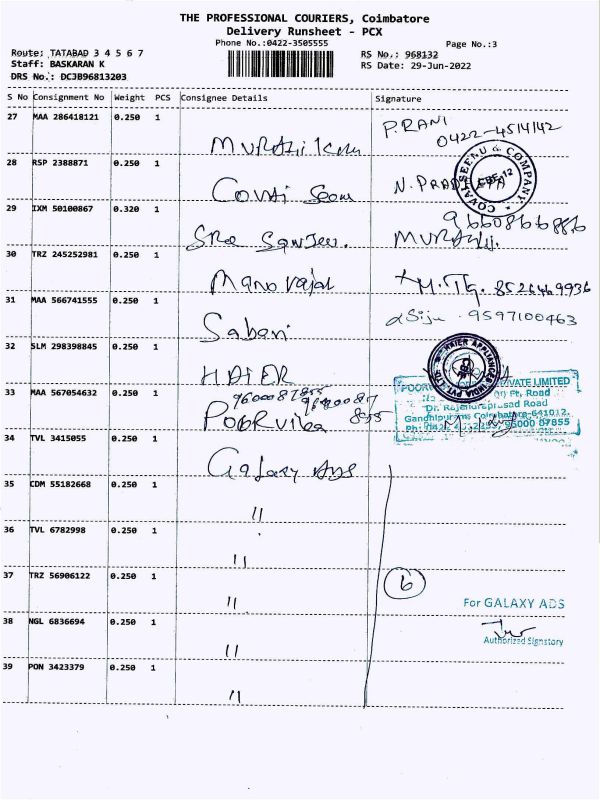 THE PROFESSIONAL COURIERS, Coimbatore
Delivery Runsheet - PCX
Phone No.:0422-3505555
Page No.:3
Route: TATABAD 3 4 5 6 7
RS No.: 968132
Staff: BASKARAN K
RS Date: 29-Jun-2022
DRS No.: DCJB96813203
S No Consignment No Weight PCS Consignee Details Signature
27 MAA 286418121 0.250 1 P.RANI
0422-4514142
28 RSP 2388871 0.250 1 Covai Seenu
COVAI SEENU & COMPANY
29 IXM 50100867 0.320 1 Sree Sanjeev.
9660866886
MURALI
30 TRZ 245252981 0.250 1 M.Tg. 8526469936
31 MAA 566741555 0.250 1 Sabari
Siju . 9597100463
32 SLM 298398845 0.250 1 HAIER
HAIER APPLIANCES INDIA PVT LTD
33 MAA 567054632 0.250 1 Poorvika
9600087855
9600087
855
PRIVATE LIMITED
Pt, Road
Dr. Rajendraprasad Road
Gandhipuram, Coimbatore-641012.
96000 87855
34 TVL 3415055 0.250 1 Galaxy ADS
35 CDM 55182668 0.250 1 "
36 TVL 6782998 0.250 1 "
37 TRZ 56906122 0.250 1 "
6
For GALAXY ADS
38 NGL 6836694 0.250 1 "
Authorized Signatory
39 PON 3423379 0.250 1 "